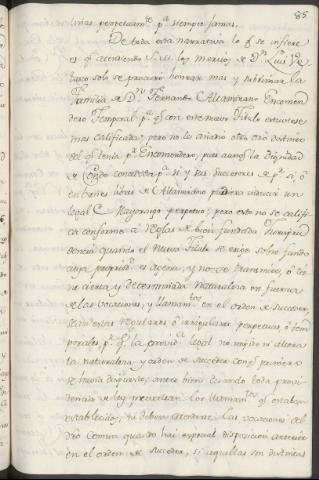 85
mas perpetuamte pa siempre jamas.
De toda esta narrativa lo q se infiere
es q atendiendo S.M. los meritos de Dn Luis Ve
lasco solo se procuró honrar mas y sublimar la
Familia de Dn Fernando Altamirano Encomen
dero Temporal pa q con este nuevo Titulo estuviese
mas calificada; pero no le añadió otro dro distinto
del q tenia pr Encomendero, pues aunq la Dignidad
de Conde concedida pa si y sus succesores de pr si, ó
en bienes libres de Altamirano pudiera inducir un
legal Mayorazgo perpetuo; pero esto no se califi
ca conforme a reglas de bien fundada Jurispru
dencia quando el nuevo Titulo se erige sobre fundo
cuya propried es agena, y no se transmite, ó tie
ne cierta y determinada naturaleza en fuerza
de las vocaciones, y llamamtos en el orden de succeder,
sean estas regulares ó irregulares perpetuas ó tem
porales pr q la provida legal no impide ni altera
la naturaleza y orden de succeder conq primero
se havia dispuesto; antes bien quando toda provi
dencia de ley prevaleciera los llamamtos q estaban
establecidos, ni deben atenderse las vocaciones del
dro comun quando hai especial disposicion anterior
en el orden de succeder, si aquellas son distintas